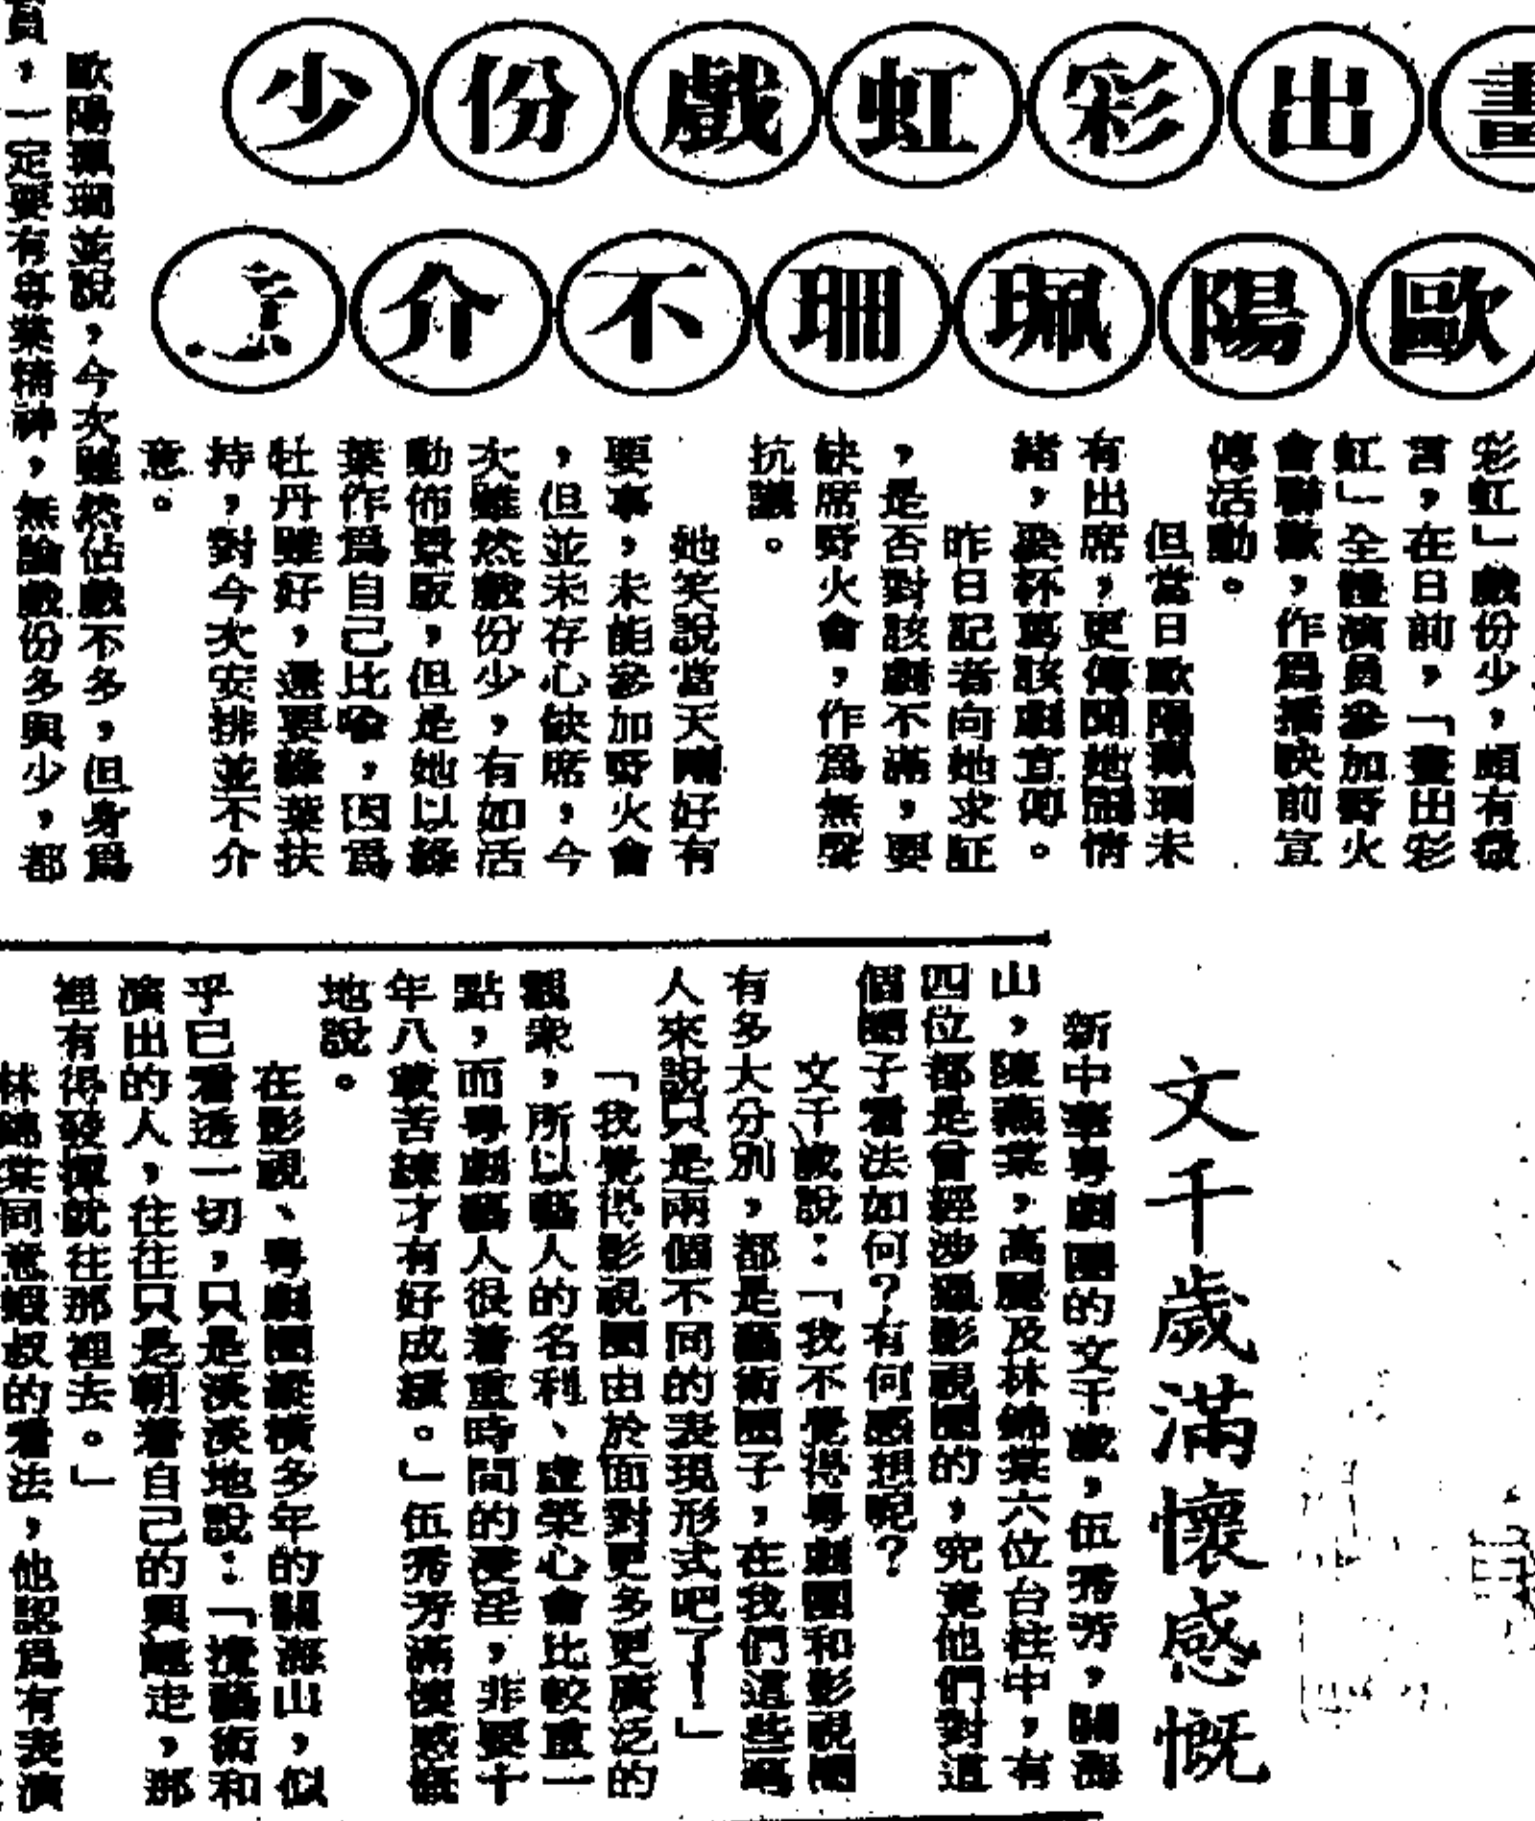 畫出彩虹戲份少
歐陽珮珊不介意
彩虹」戲份少，頗有微
言，在日前，「畫出彩
虹」全體演員參加野火
會聯歡，作爲播映前宣
傳活動。
但當日歐陽珮珊未
有出席，更傳聞她鬧情
緒，要杯葛該劇宣傳。
昨日記者向她求証
，是否對該劇不滿，要
缺席野火會，作爲無聲
抗議。
她笑說當天剛好有
要事，未能參加野火會
，但並未存心缺席，今
次雖然戲份少，有如活
動佈景版，但是她以綠
葉作爲自己比喻，因爲
牡丹雖好，還要綠葉扶
持，對今次安排並不介
意。
歐陽珮珊並說，今次雖然佔戲不多，但身爲
員，一定要有專業精神，無論戲份多與少，都
文千歲滿懷感慨
新中華粵劇團的文千歲，伍秀芳，關海
山，陳燕棠，高麗及林錦棠六位台柱中，有
四位都是曾經涉獵影視圈的，究竟他們對這
個圈子看法如何？有何感想呢？
文千歲說：「我不覺得粵劇圈和影視圈
有多大分別，都是藝術圈子，在我們這些
人來說只是兩個不同的表現形式吧了！」
「我覺得影視圈由於面對更多更廣泛的
觀衆，所以藝人的名利、虛榮心會比較重一
點，而粵劇藝人很着重時間的浸淫，非要十
年八載苦練才有好成績。」伍秀芳滿懷感慨
地說。
在影視、粵劇圈縱橫多年的關海山，似
乎已看透一切，只是淡淡地說：「搅藝術和
演出的人，往往只是朝着自己的興趣走，那
裡有得發揮就往那裡去。」
林錦棠同意蝦叔的看法，他認爲有表演